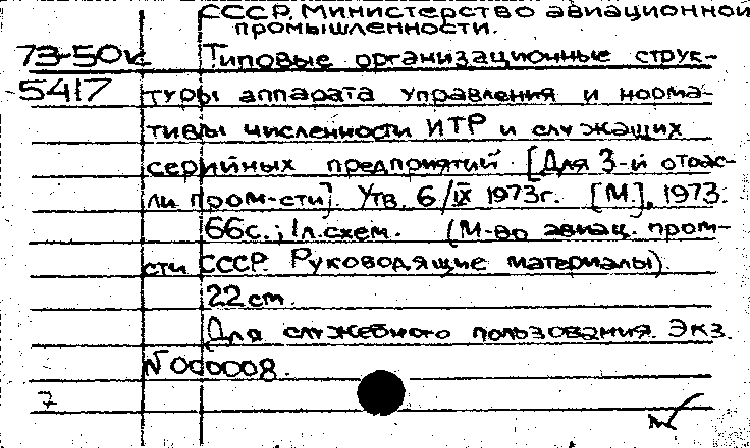 СССР. Министерство авиационной
промышленности.
73-50к Типовые организационные струк-
5417 туры аппарата управления и норма-
тивы численности ИТР и служащих
серийных предприятий. [Для 3-й отрас-
ли пром-сти]. Утв. 6/IX 1973г. [М], 1973.
66с.; 1л.схем. (М-во авиац. пром-
сти СССР. Руководящие материалы).
22см.
Для служебного пользования. Экз.
№000008.
7